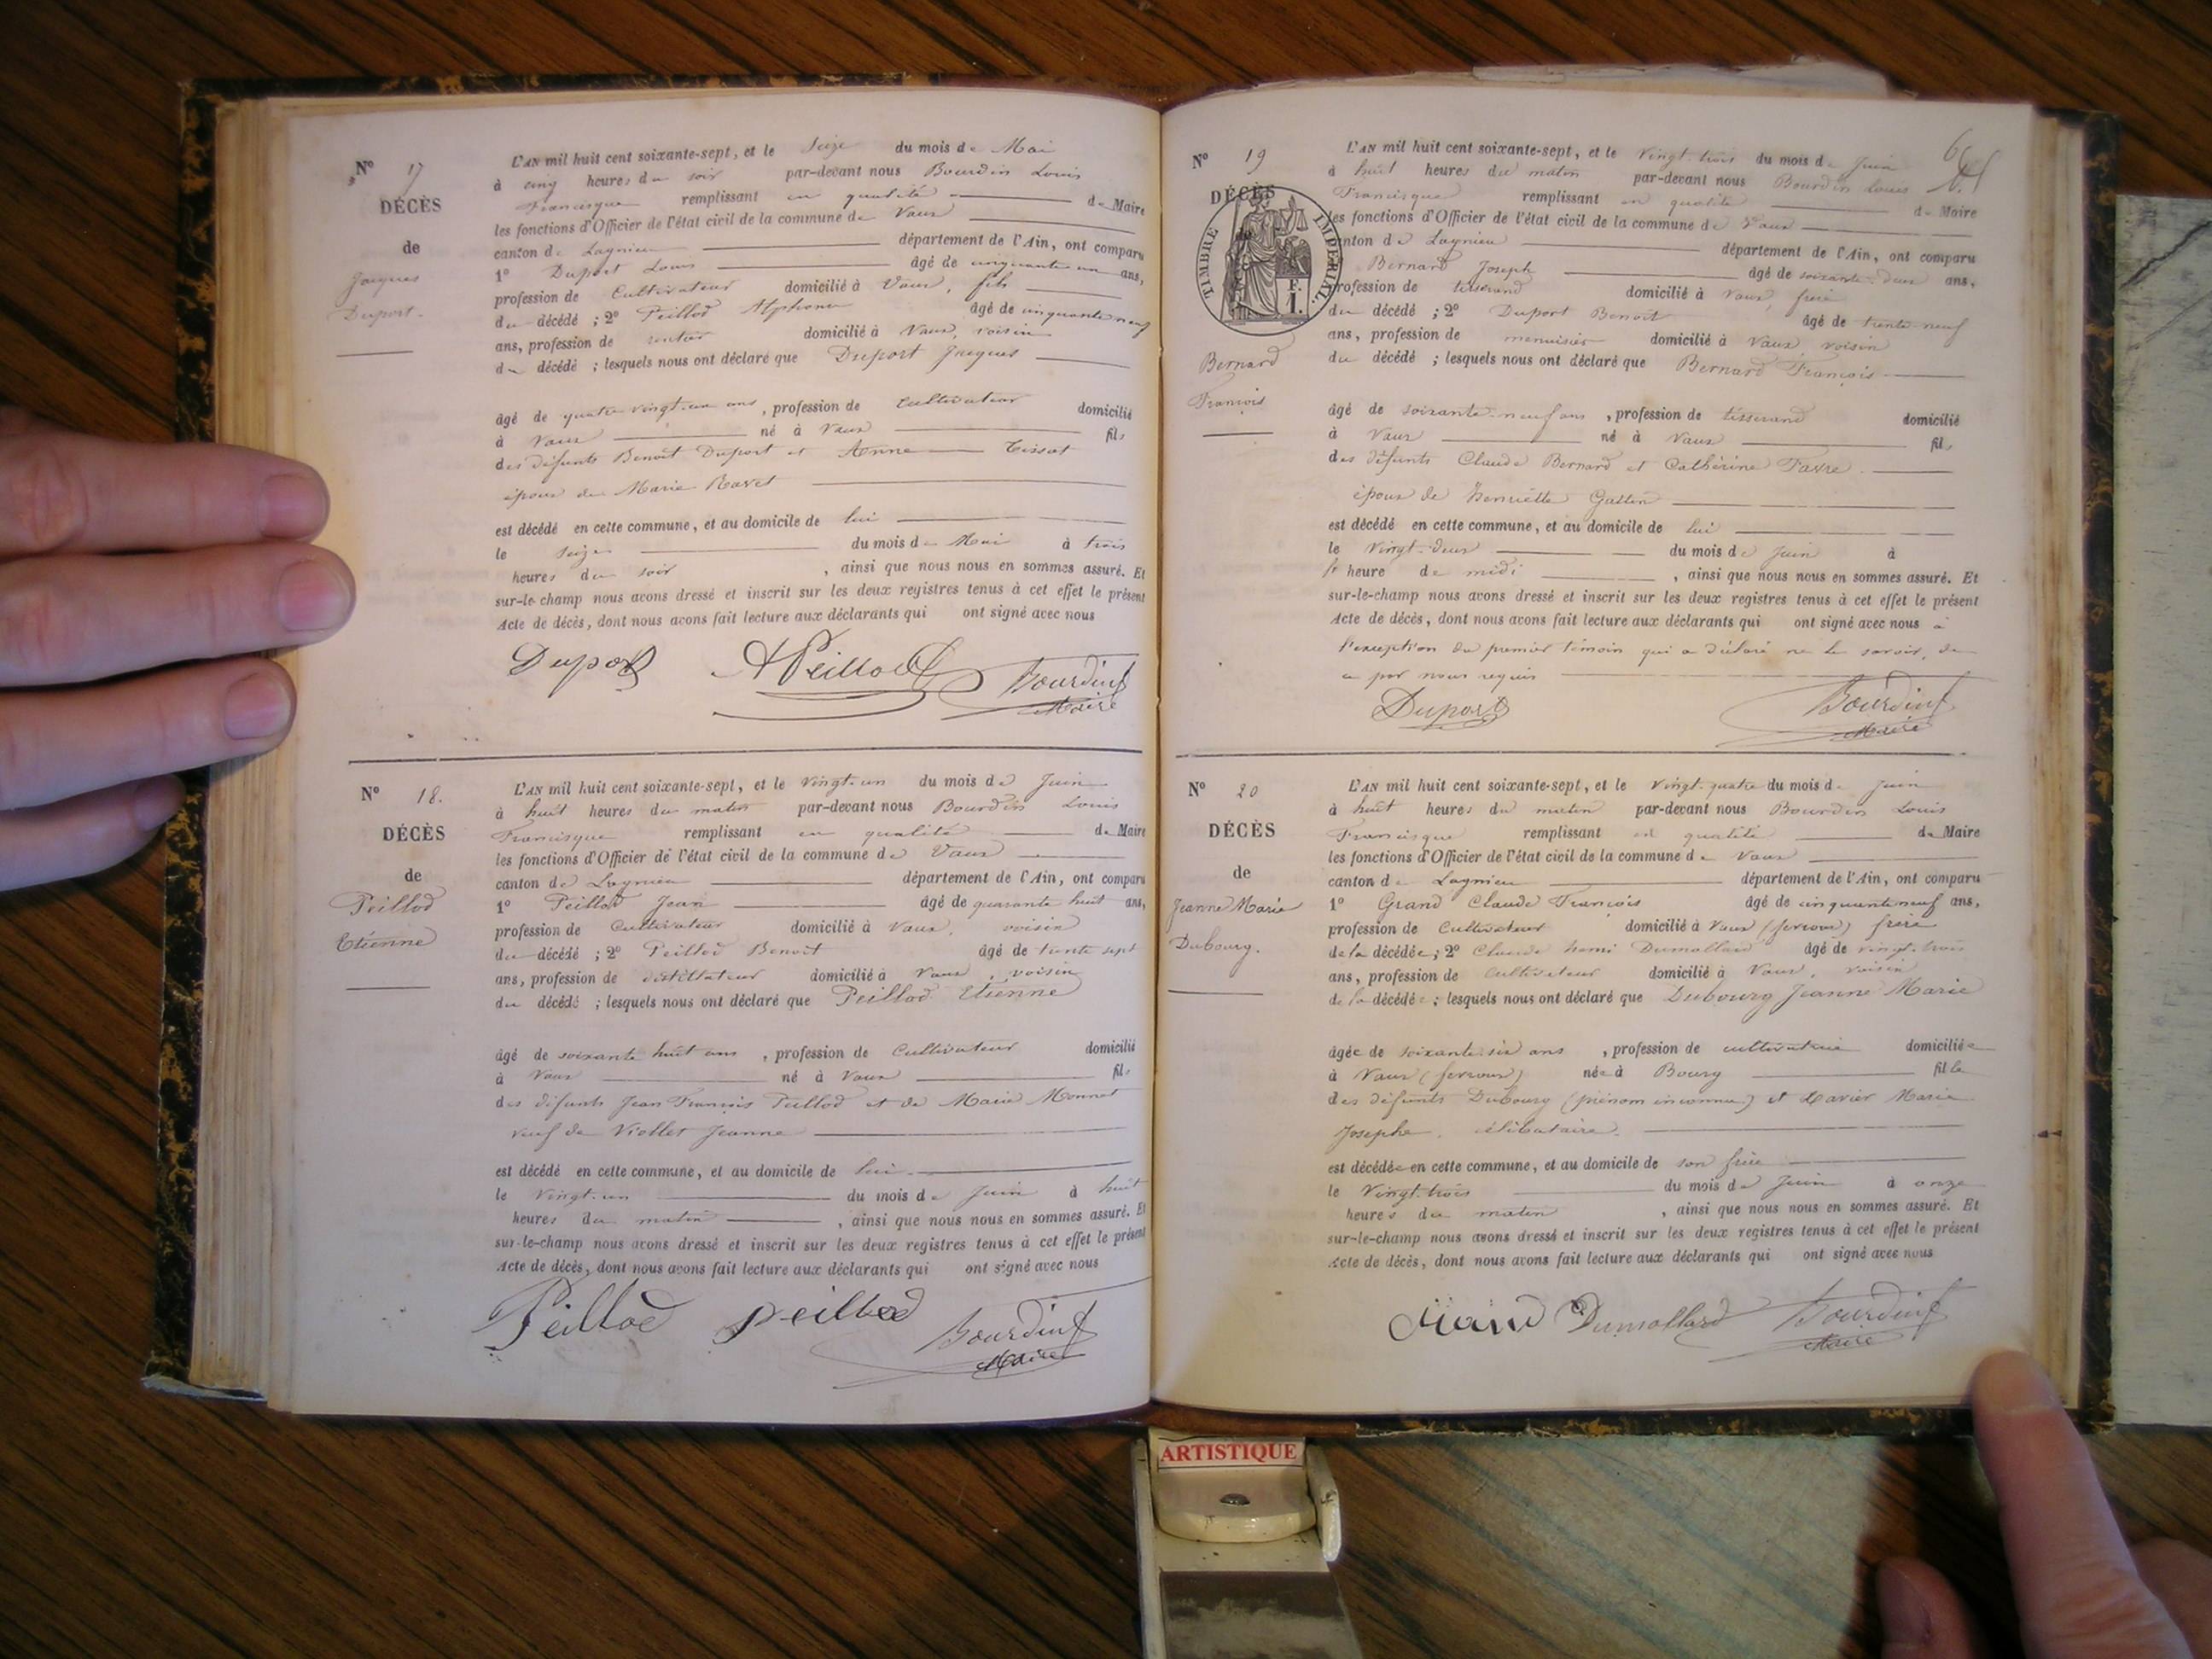 N° 17
DÉCÈS
de
Jacques
Duport.
L'AN mil huit cent soixante-sept, et le Seize du mois de Mai
à cinq heures du soir par-devant nous Bourdin Louis
Francisque remplissant en qualité de Maire
les fonctions d'Officier de l'état civil de la commune de Vaux
canton de Lagnieu département de l'Ain, ont comparu
1° Duport Louis âgé de cinquante un ans,
profession de Cultivateur domicilié à Vaux, fils
du décédé ; 2° Peillod Alphonse âgé de cinquante neuf
ans, profession de rentier domicilié à Vaux, voisin
du décédé ; lesquels nous ont déclaré que Duport Jacques
âgé de quatre vingt un ans, profession de Cultivateur domicilié
à Vaux né à Vaux fils
des défunts Benoît Duport et Anne Tissot
époux de Marie Ravet
est décédé en cette commune, et au domicile de lui
le Seize du mois de Mai à trois
heures du soir, ainsi que nous nous en sommes assuré. Et
sur-le-champ nous avons dressé et inscrit sur les deux registres tenus à cet effet le présent
Acte de décès, dont nous avons fait lecture aux déclarants qui ont signé avec nous
Duport APeillod Bourdin
Maire
N° 18.
DÉCÈS
de
Peillod
Etienne
L'AN mil huit cent soixante-sept, et le Vingt-un du mois de Juin
à huit heures du matin par-devant nous Bourdin Louis
Francisque remplissant en qualité de Maire
les fonctions d'Officier de l'état civil de la commune de Vaux
canton de Lagnieu département de l'Ain, ont comparu
1° Peillod Jean âgé de quarante huit ans,
profession de Cultivateur domicilié à Vaux, voisin
du décédé ; 2° Peillod Benoit âgé de trente sept
ans, profession de distillateur domicilié à Vaux, voisin
du décédé ; lesquels nous ont déclaré que Peillod Etienne
âgé de soixante huit ans, profession de Cultivateur domicilié
à Vaux né à Vaux fils
des défunts Jean François Peillod et de Marie Monnet
veuf de Viollet Jeanne
est décédé en cette commune, et au domicile de lui
le Vingt-un du mois de Juin à huit
heures du matin, ainsi que nous nous en sommes assuré. Et
sur-le-champ nous avons dressé et inscrit sur les deux registres tenus à cet effet le présent
Acte de décès, dont nous avons fait lecture aux déclarants qui ont signé avec nous
Peillod peillod Bourdin
Maire
N° 19
DÉCÈS
de
TIMBRE IMPÉRIAL.
Bernard
François
L'AN mil huit cent soixante-sept, et le Vingt-trois du mois de Juin
à huit heures du matin par-devant nous Bourdin Louis
Francisque remplissant en qualité de Maire
les fonctions d'Officier de l'état civil de la commune de Vaux
canton de Lagnieu département de l'Ain, ont comparu
Bernard Joseph âgé de soixante-deux ans,
profession de tisserand domicilié à Vaux, frère
du décédé ; 2° Duport Benoit âgé de trente-neuf
ans, profession de menuisier domicilié à Vaux, voisin
du décédé ; lesquels nous ont déclaré que Bernard François
âgé de soixante-neuf ans, profession de tisserand domicilié
à Vaux né à Vaux fils
des défunts Claude Bernard et Cathérine Favre.
époux de Henriette Gallen
est décédé en cette commune, et au domicile de lui
le Vingt-deux du mois de Juin à
heure de midi, ainsi que nous nous en sommes assuré. Et
sur-le-champ nous avons dressé et inscrit sur les deux registres tenus à cet effet le présent
Acte de décès, dont nous avons fait lecture aux déclarants qui ont signé avec nous à
l'exception du premier témoin qui a déclaré ne le savoir, de
ce par nous requis
Duport Bourdin
Maire
N° 20
DÉCÈS
de
Jeanne Marie
Dubourg.
L'AN mil huit cent soixante-sept, et le Vingt-quatre du mois de Juin
à huit heures du matin par-devant nous Bourdin Louis
Francisque remplissant en qualité de Maire
les fonctions d'Officier de l'état civil de la commune de Vaux
canton de Lagnieu département de l'Ain, ont comparu
1° Grand Claude François âgé de cinquante neuf ans,
profession de Cultivateur domicilié à Vaux (fervoux) frère
de la décédée ; 2° Claude henri Dumollard âgé de vingt-trois
ans, profession de Cultivateur domicilié à Vaux, voisin
de la décédée ; lesquels nous ont déclaré que Dubourg Jeanne Marie
âgée de soixante six ans, profession de cultivatrice domiciliée
à Vaux (fervoux) née à Bourg fille
des défunts Dubourg (prénom inconnu) et Xavier Marie
Josephe, célibataire.
est décédée en cette commune, et au domicile de son frère
le Vingt-trois du mois de Juin à onze
heures du matin, ainsi que nous nous en sommes assuré. Et
sur-le-champ nous avons dressé et inscrit sur les deux registres tenus à cet effet le présent
Acte de décès, dont nous avons fait lecture aux déclarants qui ont signé avec nous
Grand Dumollard Bourdin
Maire
ARTISTIQUE